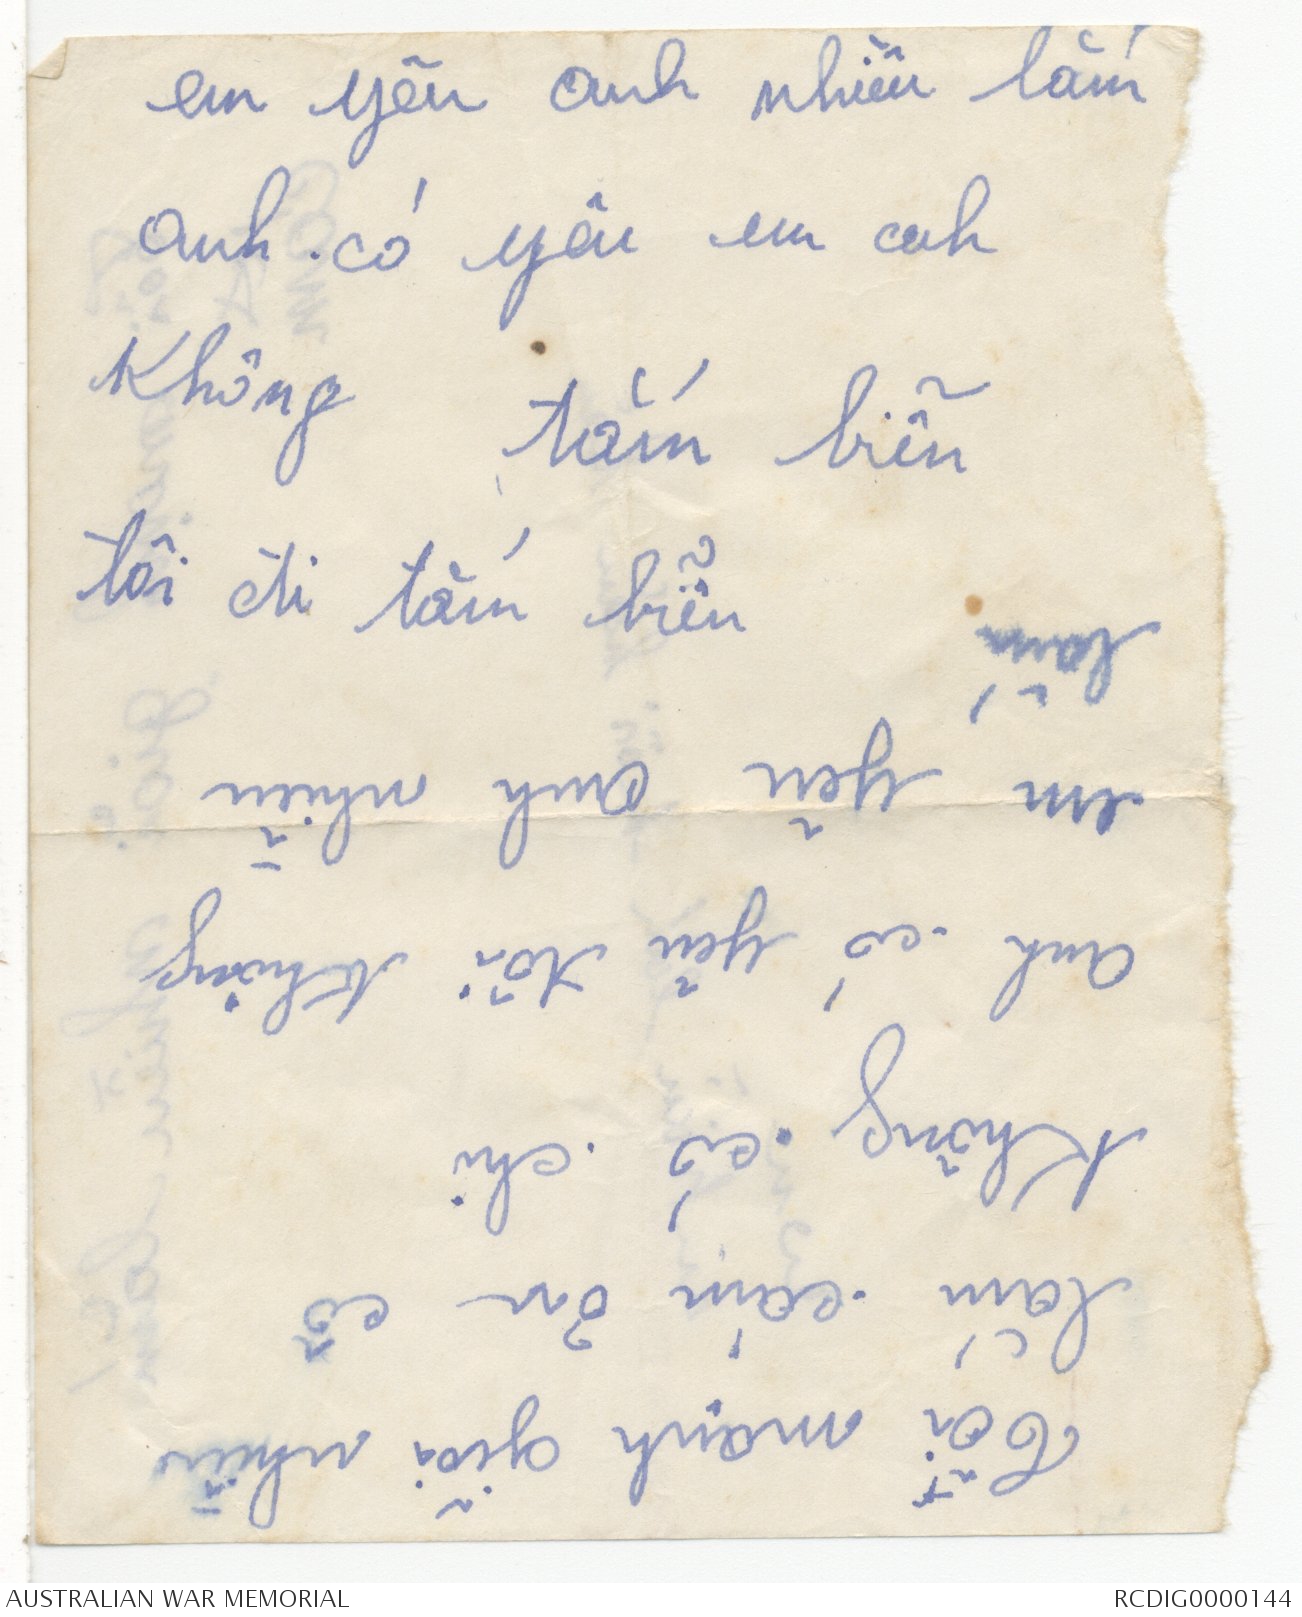 em yêu anh nhiều lắm
anh có yêu em anh
không
tắm biển
tôi đi tắm biển
Tôi mạnh giỏi nhiều
lắm cám ơn cô
không có chi
anh có yêu tôi không
em yêu anh nhiều
lắm
AUSTRALIAN WAR MEMORIAL
RCDIG0000144